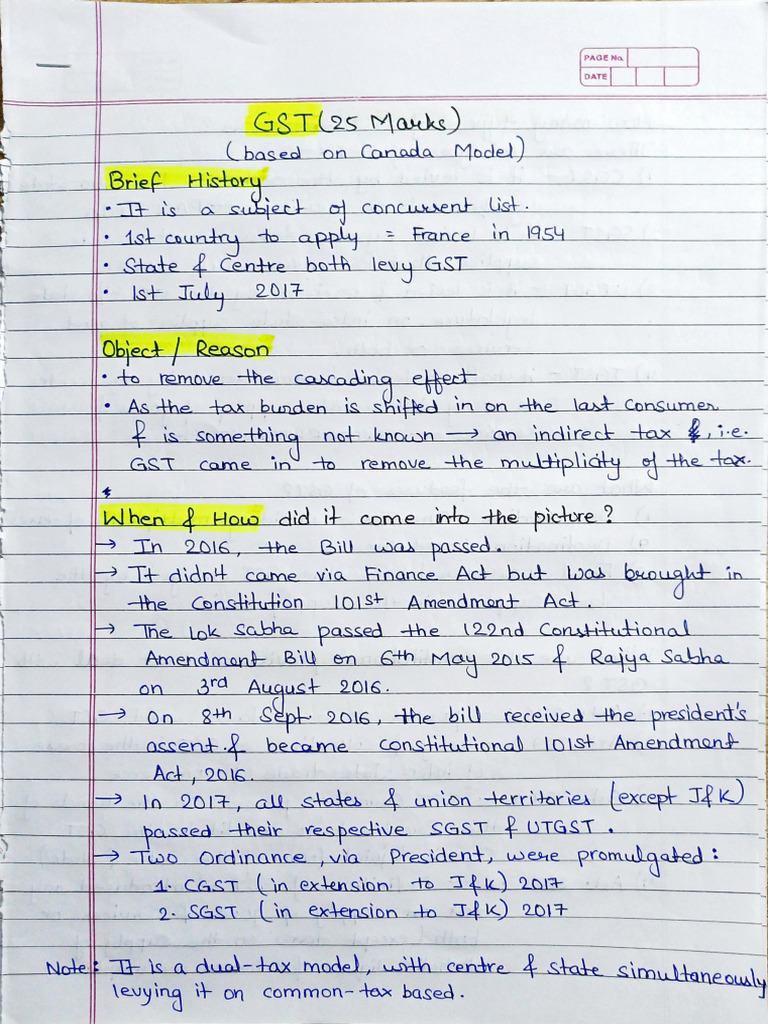 PAGE No.
DATE
GST (25 Marks)
(based on Canada Model)
Brief History
• It is a subject of concurrent list.
• 1st country to apply = France in 1954
• State & Centre both levy GST
• 1st July 2017
Object / Reason
• to remove the cascading effect
• As the tax burden is shifted in on the last consumer
& is something not known → an indirect tax , i.e.
GST came in to remove the multiplicity of the tax.
When & How did it come into the picture?
→ In 2016, the Bill was passed.
→ It didn't came via Finance Act but was brought in
the Constitution 101st Amendment Act.
→ The Lok Sabha passed the 122nd Constitutional
Amendment Bill on 6th May 2015 & Rajya Sabha
on 3rd August 2016.
→ On 8th Sept 2016, the bill received the president's
assent & became constitutional 101st Amendment
Act, 2016.
→ In 2017, all states & union territories (except J&K)
passed their respective SGST & UTGST.
→ Two Ordinance, via President, were promulgated:
1. CGST (in extension to J&K) 2017
2. SGST (in extension to J&K) 2017
Note: It is a dual-tax model, with centre & state simultaneously
levying it on common-tax based.